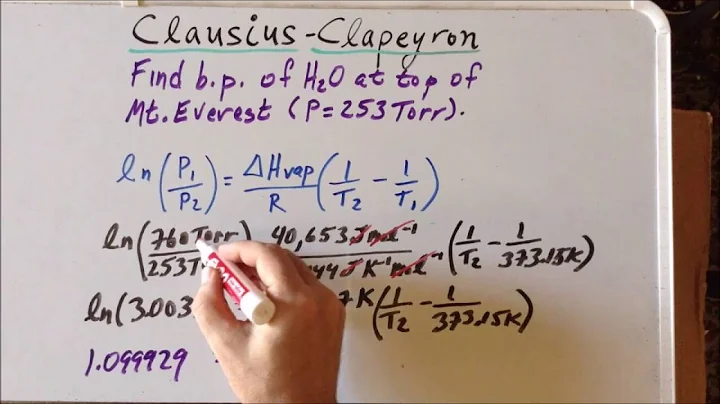 Clausius-Clapeyron
Find b.p. of H₂O at top of
Mt. Everest (P=253 Torr).
ln(P₁/P₂) = ΔHvap/R (1/T₂ - 1/T₁)
ln(760 Torr/253 T 40,653 J mol⁻¹/44 J K⁻¹ mol⁻¹ (1/T₂ - 1/373.15K)
ln(3.003 7K (1/T₂ - 1/373.15K)
1.099929